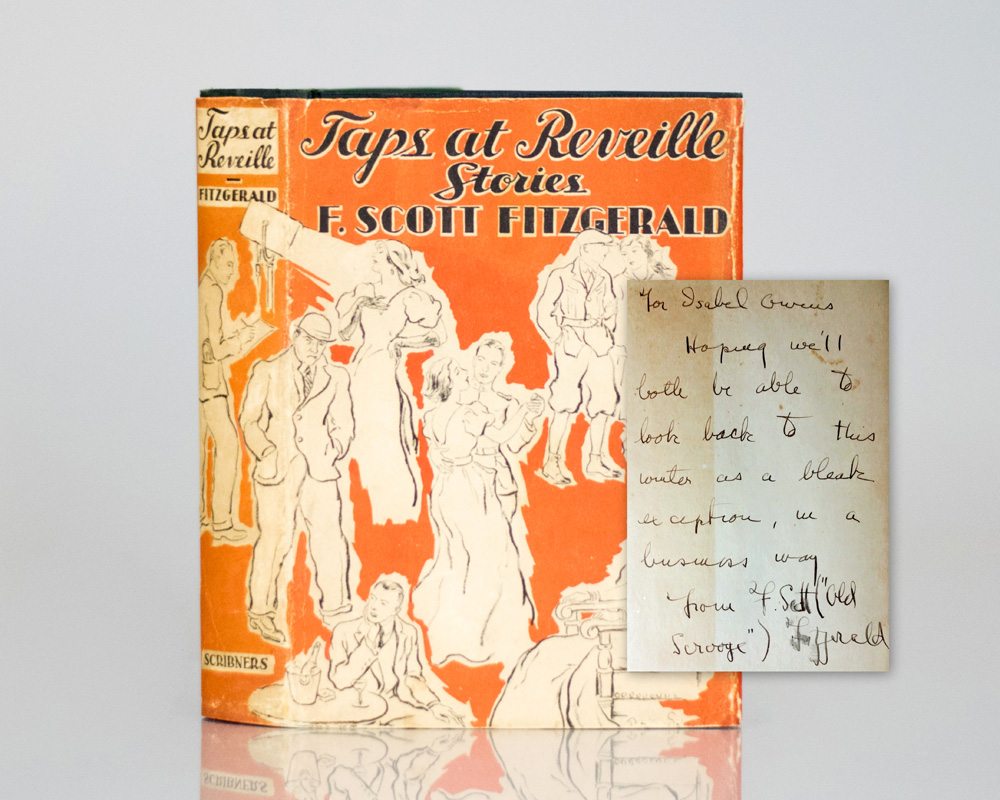 Taps at
Reveille
FITZGERALD
SCRIBNERS
Taps at Reveille
Stories
F. SCOTT FITZGERALD
For Isabel Owens
Hoping we'll
both be able to
look back to this
winter as a bleak
exception, in a
business way
from F. Scott ("Old
Scrooge") Fitzgerald